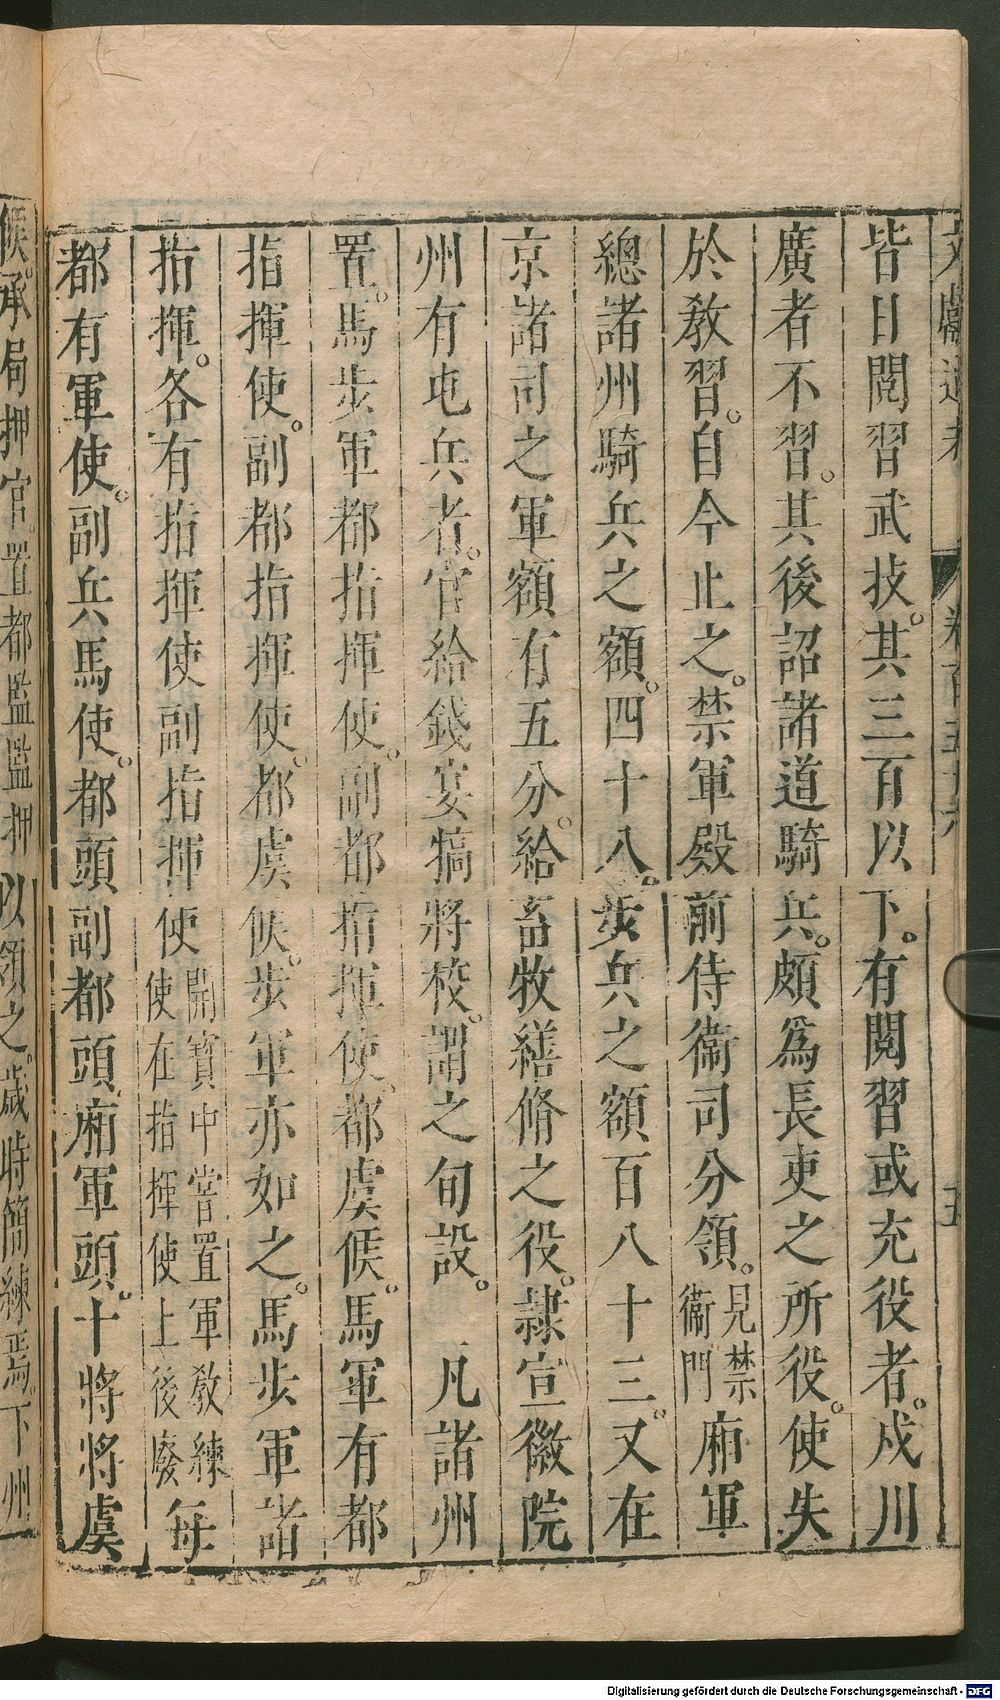 文獻通考 卷百五十六 五
皆日閱習武技。其三百以下。有閱習或充役者。戍川
廣者不習。其後詔諸道騎兵。頗爲長吏之所役。使失
於敎習。自今止之。禁軍殿前侍衞司分領。見禁衞門廂軍
總諸州騎兵之額。四十八。步兵之額百八十三。又在
京諸司之軍額有五分。給畜牧繕脩之役。隷宣徽院
州有屯兵者。官給錢宴犒將校。謂之旬設。 凡諸州
置。馬步軍都指揮使。副都指揮使。都虞候。馬軍有都
指揮使。副都指揮使。都虞候。步軍亦如之。馬步軍諸
指揮。各有指揮使副指揮使開寶中嘗置軍敎練使在指揮使上後廢每
都有軍使。副兵馬使。都頭副都頭廂軍頭。十將將虞
候。承局押官。置都監監押以領之。歲時簡練焉。下州
Digitalisierung gefördert durch die Deutsche Forschungsgemeinschaft - DFG